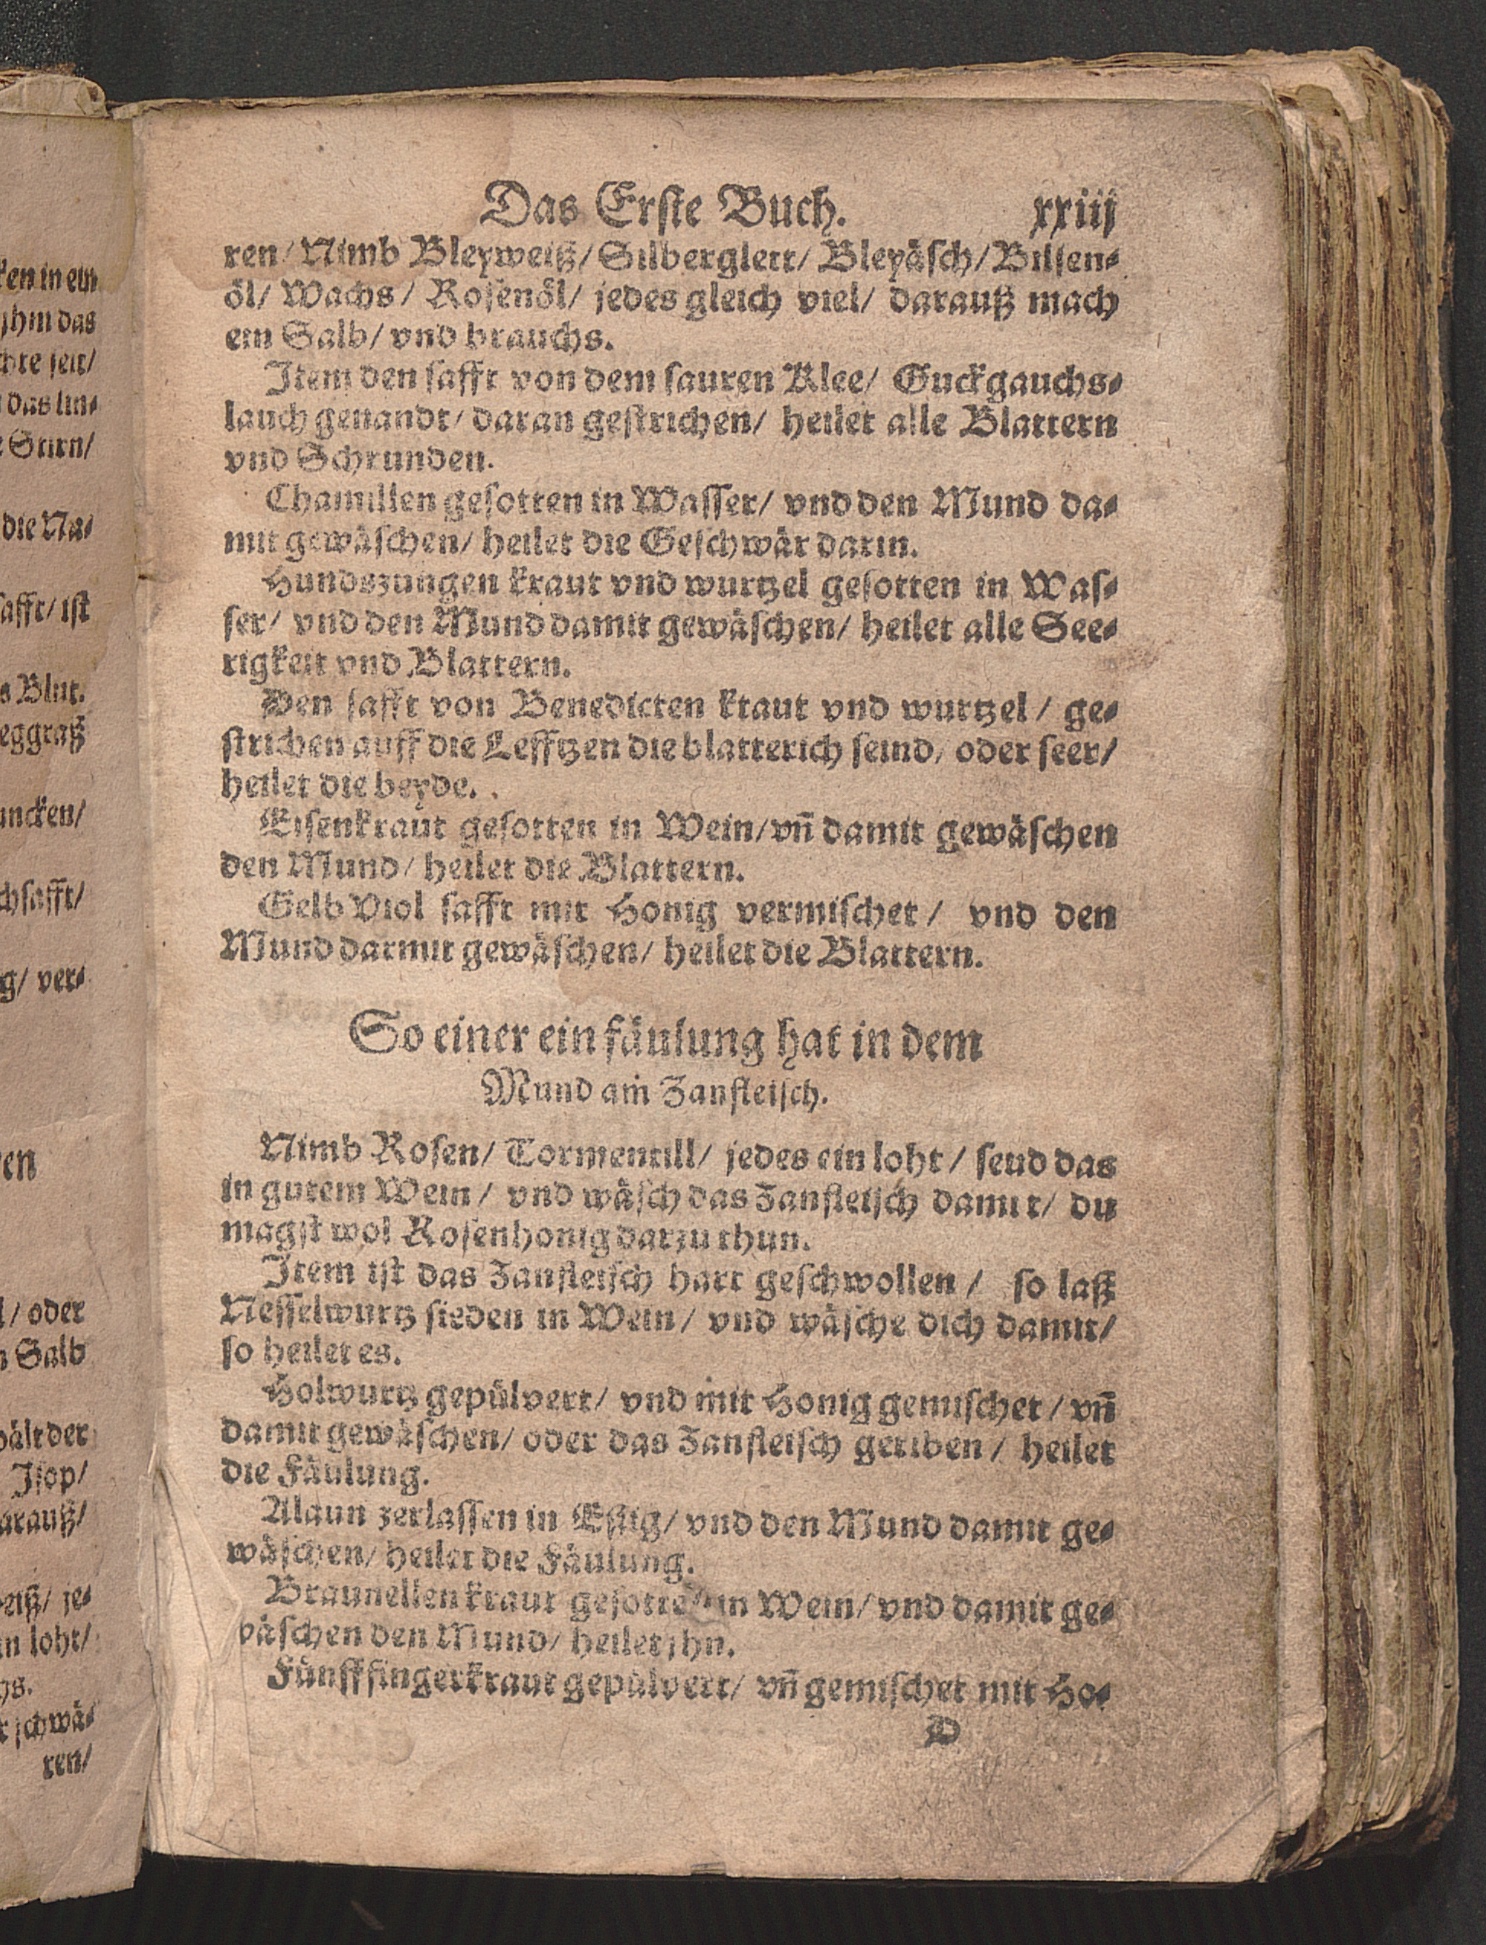 Das Erste Buch. xxiij
ren/ Nimb Bleyweiß/ Silberglett/ Bleyäsch/ Bilsen⸗
öl/ Wachs/ Rosenöl/ jedes gleich viel/ darauß mach
ein Salb/ vnd brauchs.
Item den safft von dem sauren Klee/ Guckgauchs⸗
lauch genandt/ daran gestrichen/ heilet alle Blattern
vnd Schrunden.
Chamillen gesotten in Wasser/ vnd den Mund da⸗
mit gewäschen/ heilet die Geschwär darin.
Hundszungen kraut vnd wurtzel gesotten in Was⸗
ser/ vnd den Mund damit gewäschen/ heilet alle See⸗
rigkeit vnd Blattern.
Den safft von Benedicten kraut vnd wurtzel/ ge⸗
strichen auff die Lefftzen die blatterich seind/ oder seer/
heilet die beyde.
Eisenkraut gesotten in Wein/ vñ damit gewäschen
den Mund/ heilet die Blattern.
Gelb Viol safft mit Honig vermischet/ vnd den
Mund darmit gewäschen/ heilet die Blattern.
So einer ein fäulung hat in dem
Mund am Zanfleisch.
Nimb Rosen/ Tormentill/ jedes ein loht/ seud das
in gutem Wein/ vnd wäsch das Zanfleisch damit/ du
magst wol Rosenhonig darzu thun.
Item ist das Zanfleisch hart geschwollen/ so laß
Nesselwurtz sieden in Wein/ vnd wäsche dich damit/
so heilet es.
Holwurtz gepülvert/ vnd mit Honig gemischet/ vñ
damit gewäschen/ oder das Zanfleisch geriben/ heilet
die Fäulung.
Alaun zerlassen in Essig/ vnd den Mund damit ge⸗
wäschen/ heilet die Fäulung.
Braunellenkraut gesotten in Wein/ vnd damit ge⸗
wäschen den Mund/ heilet jhn.
Fünfffingerkraut gepülvert/ vñ gemischet mit Ho⸗
D